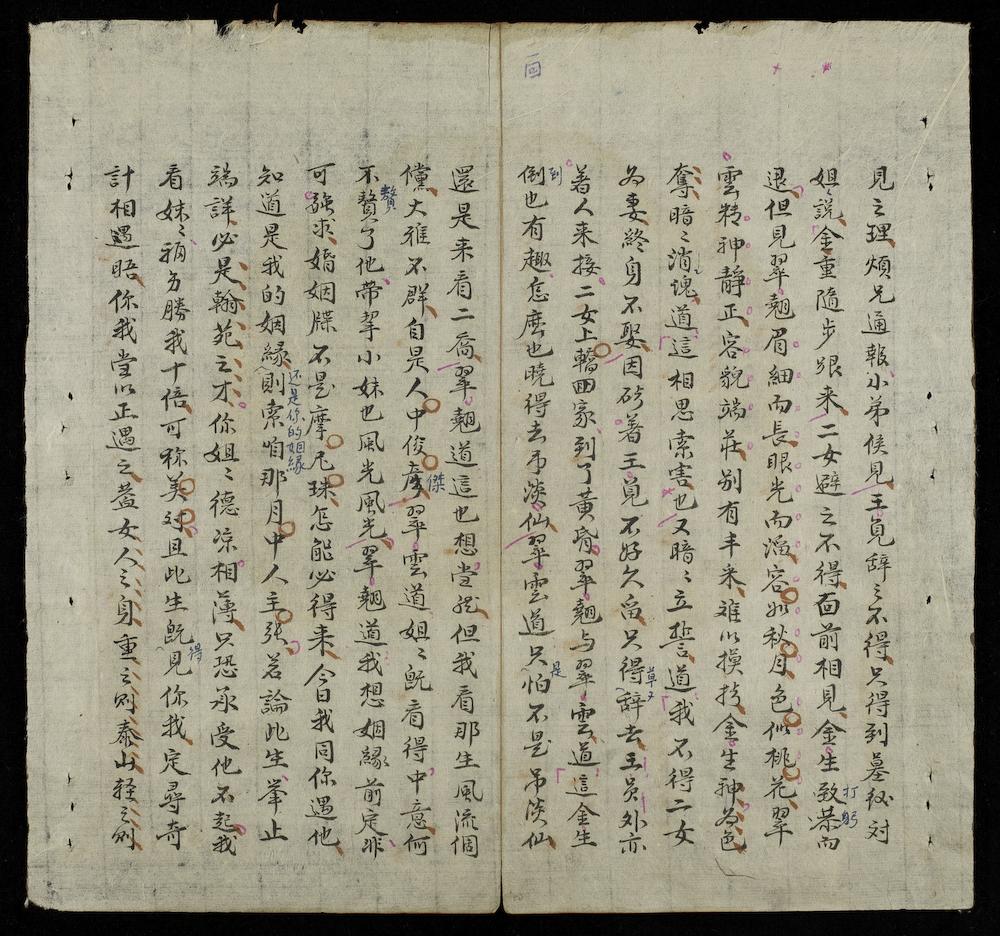 一回
見之理煩兄通報小弟侯見王貟辞〻不得只得到墓後对
姐〻說金重隨步跟来二女避之不得面前相見金生致恭而
打躬
退但見翠翹眉細而長眼光而溜容如秋月色似桃花翠
雲精神静正容貌端莊别有丰采难以摸拟金生神為色
奪暗〻消塊道這相思索害也又暗〻立誓道我不得二女
为妻終身不娶因碍着王覓不好久留只得辞去王貟外亦
草〻
着人来接二女上轎田家到了黄昏翠翹与翠雲道這金生
倒也有趣怎麽也曉得去吊淡仙翠雲道只怕不是吊淡仙
到
是
還是来看二喬翠翹道這也想當然但我看那生風流倜
儻大雅不群自是人中俊彥翠雲道姐〻既看得中意何
傑
不贅了他帶挈小妹也風光風光翠翹道我想姻緣前定非
贅
可强求婚姻牒不是摩尼珠怎能必得来今日我同你遇他
知道是我的姻緣則索咱那月中人主張若論此生举止
还是你的姻緣
端詳必是翰苑之才你姐〻德凉相薄只恐承受他不起我
看妹〻福分勝我十倍可称美对且此生既見你我定尋奇
得
計相遇晤你我當以正遇之蓋女人之身重之則泰山輕之則